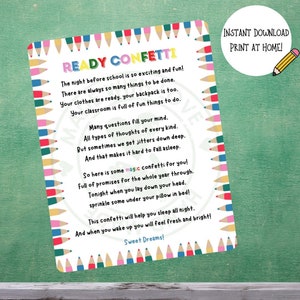 INSTANT DOWNLOAD
PRINT AT HOME!
READY CONFETTI
The night before school is so exciting and fun!
There are always so many things to be done.
Your clothes are ready, your backpack is too.
Your classroom is full of fun things to do.
Many questions fill your mind,
All types of thoughts of every kind.
But sometimes we get jitters down deep,
And that makes it hard to fall asleep.
So here is some magic confetti for you!
Full of promises for the whole year through.
Tonight when you lay down your head,
sprinkle some under your pillow in bed!
This confetti will help you sleep all night.
And when you wake up you will feel fresh and bright!
Sweet Dreams!